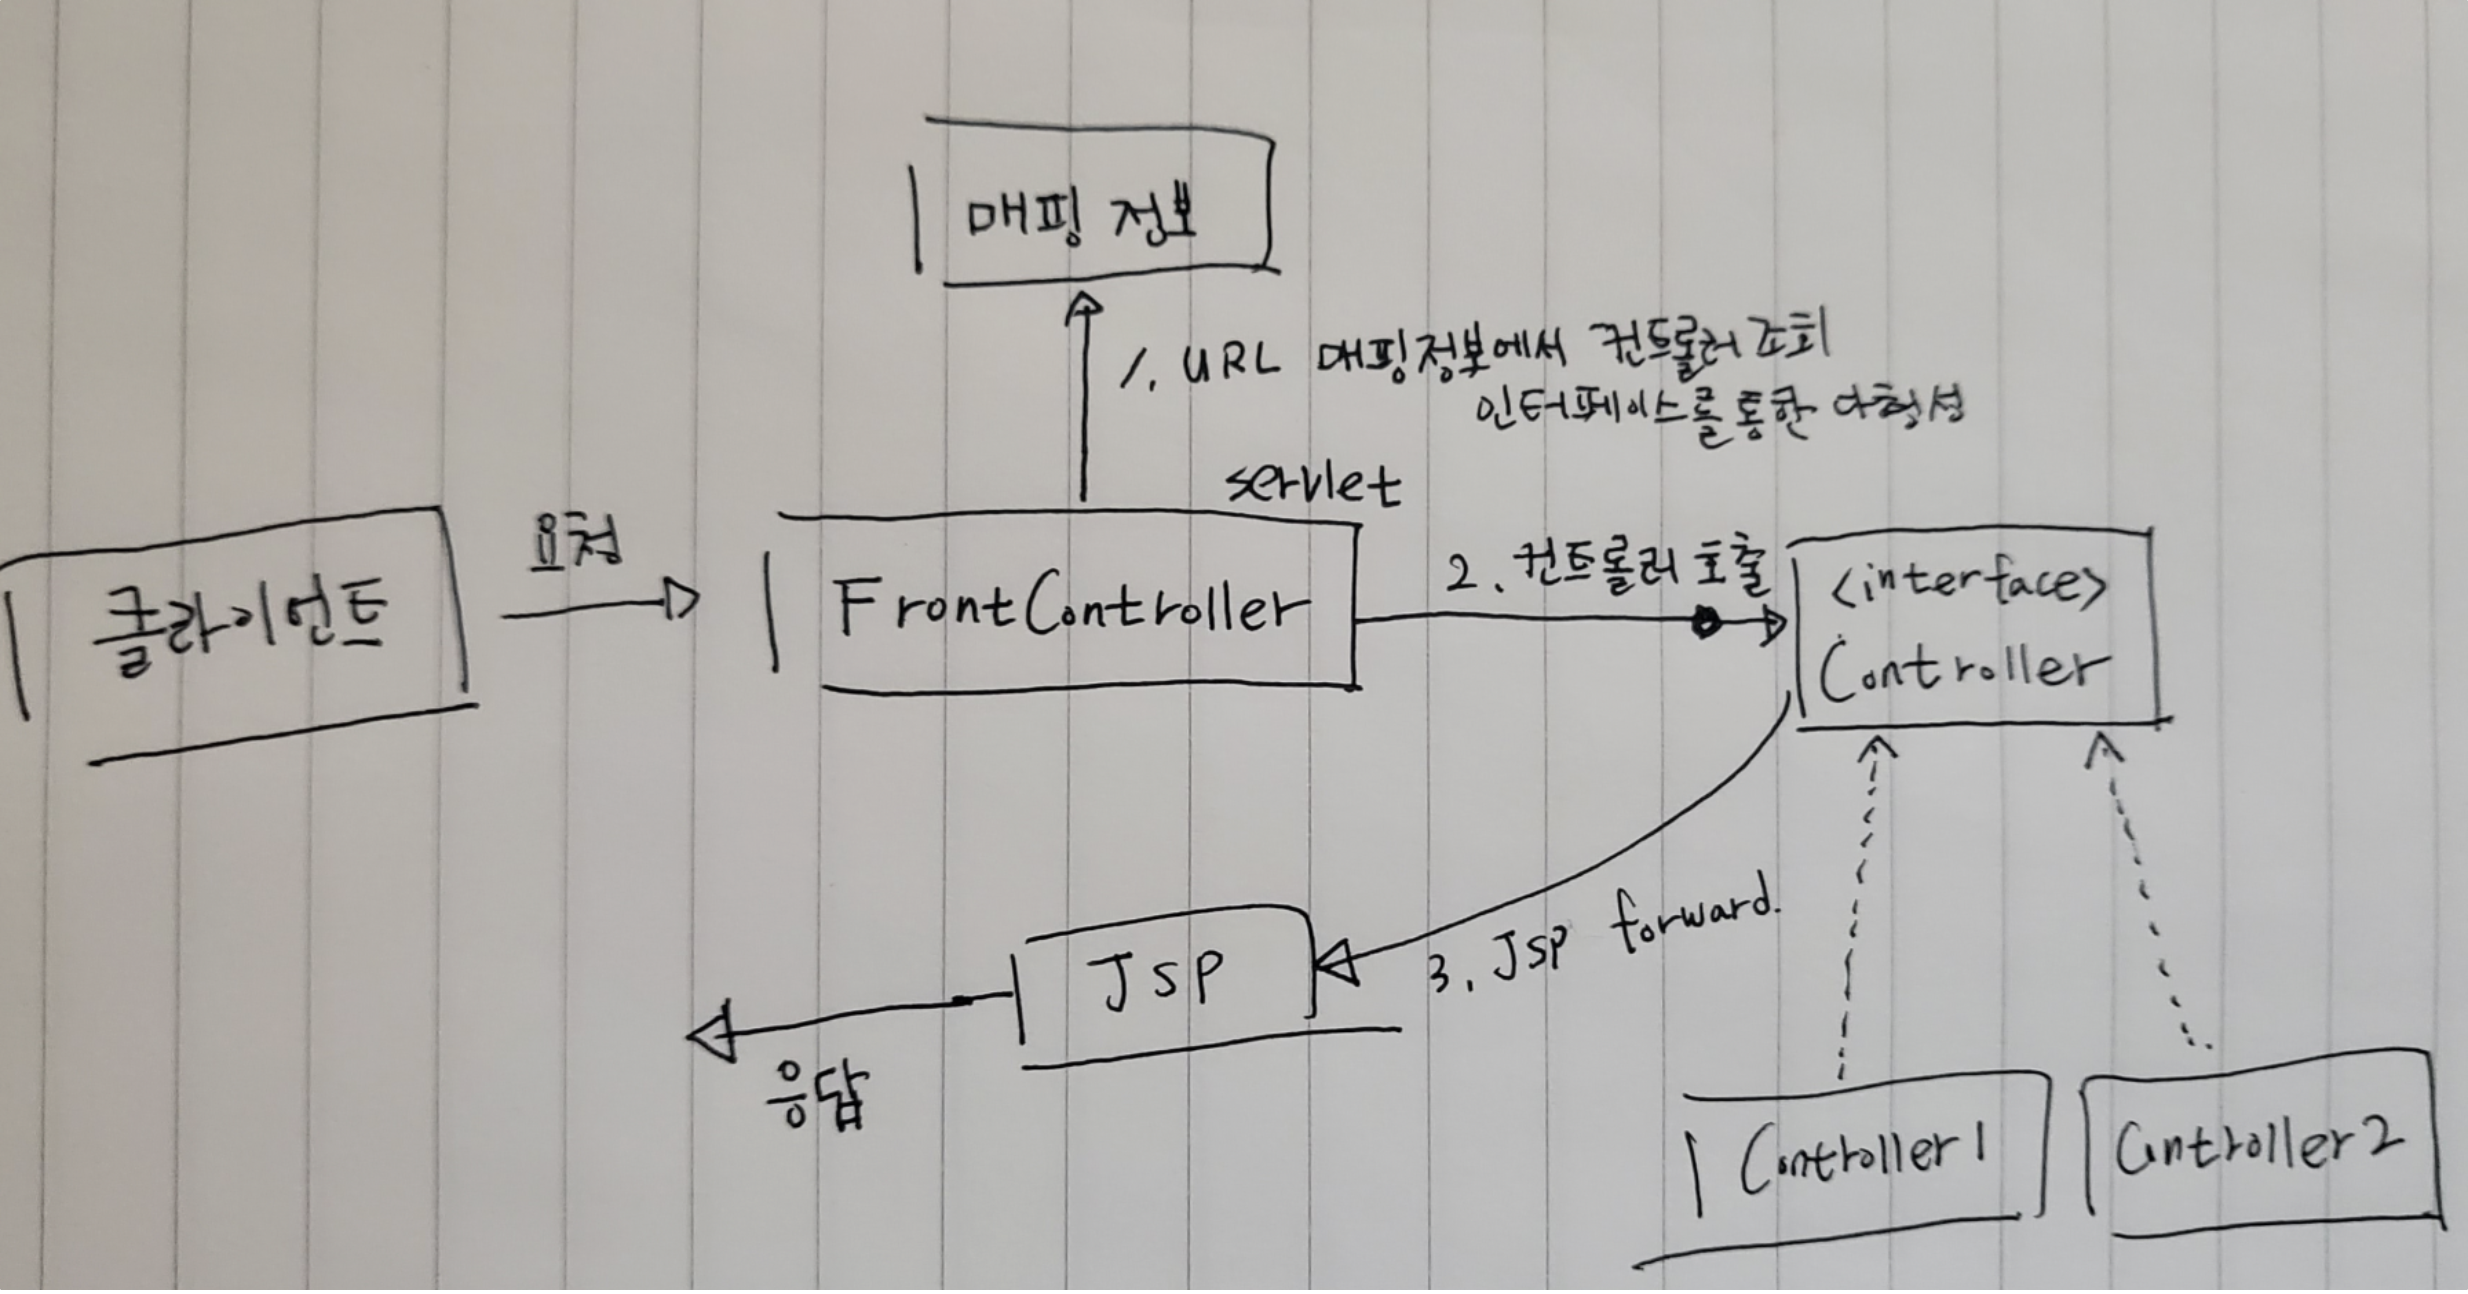 매핑 정보
1. URL 매핑정보에서 컨트롤러 조회
인터페이스를 통한 다형성
servlet
클라이언트
요청
FrontController
2. 컨트롤러 호출
<interface>
Controller
3. JSP forward.
JSP
응답
Controller1
Controller2